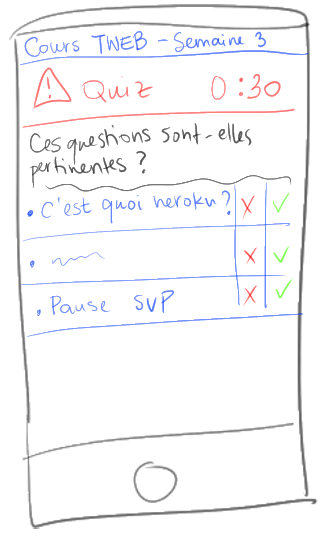 Cours TWEB - Semaine 3
! Quiz 0:30
Ces questions sont-elles
pertinentes ?
• C'est quoi heroku ? X ✓
• X ✓
• Pause SVP X ✓